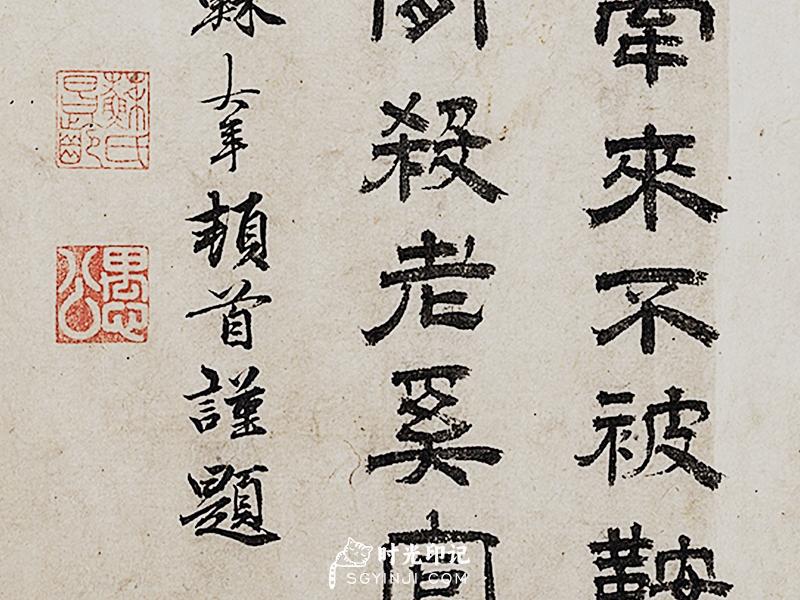 牽來不被鞍
殺老奚官
蘇大年頓首謹題
蘇氏昌齡
愚公
时光印记
SGYINJI.COM